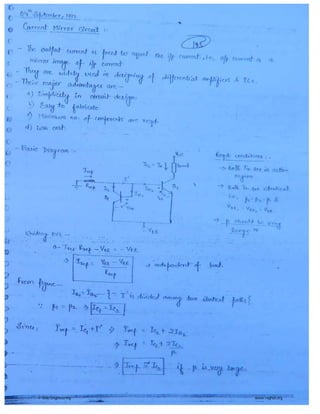 04th September, 1992
Current Mirror Circuit :-
195
- The output current is forced to equal the i/p current, i.e., o/p current is a
mirror image of i/p current.
- They are widely used in designing of differential amplifiers & ICs.
- Their major advantages are -
a) Simplicity in circuit design.
b) Easy to fabricate
c) Minimum no. of components are reqd.
d) Low cost.
- Basic Diagram -
Reqd conditions :-
→ Both Trs are in active
region
→ Both Trs are identical
i.e., β1 = β2 = β &
VBE1 = VBE2 = VBE
→ β should be very
large
0 - Iref . Rref - VBE = - VEE
⇒ Iref = VEE - VBE / Rref → independent of load.
From figure -
{ - I' is divided among two identical paths }
∵ β1 = β2 ⇒ IC1 = IC2
Since, Iref = IC1 + I' ⇒ Iref = IC1 + 2IB2
⇒ Iref = IC2 + 2IC2 / β
⇒ Iref ≅ IC2 if β is very large.